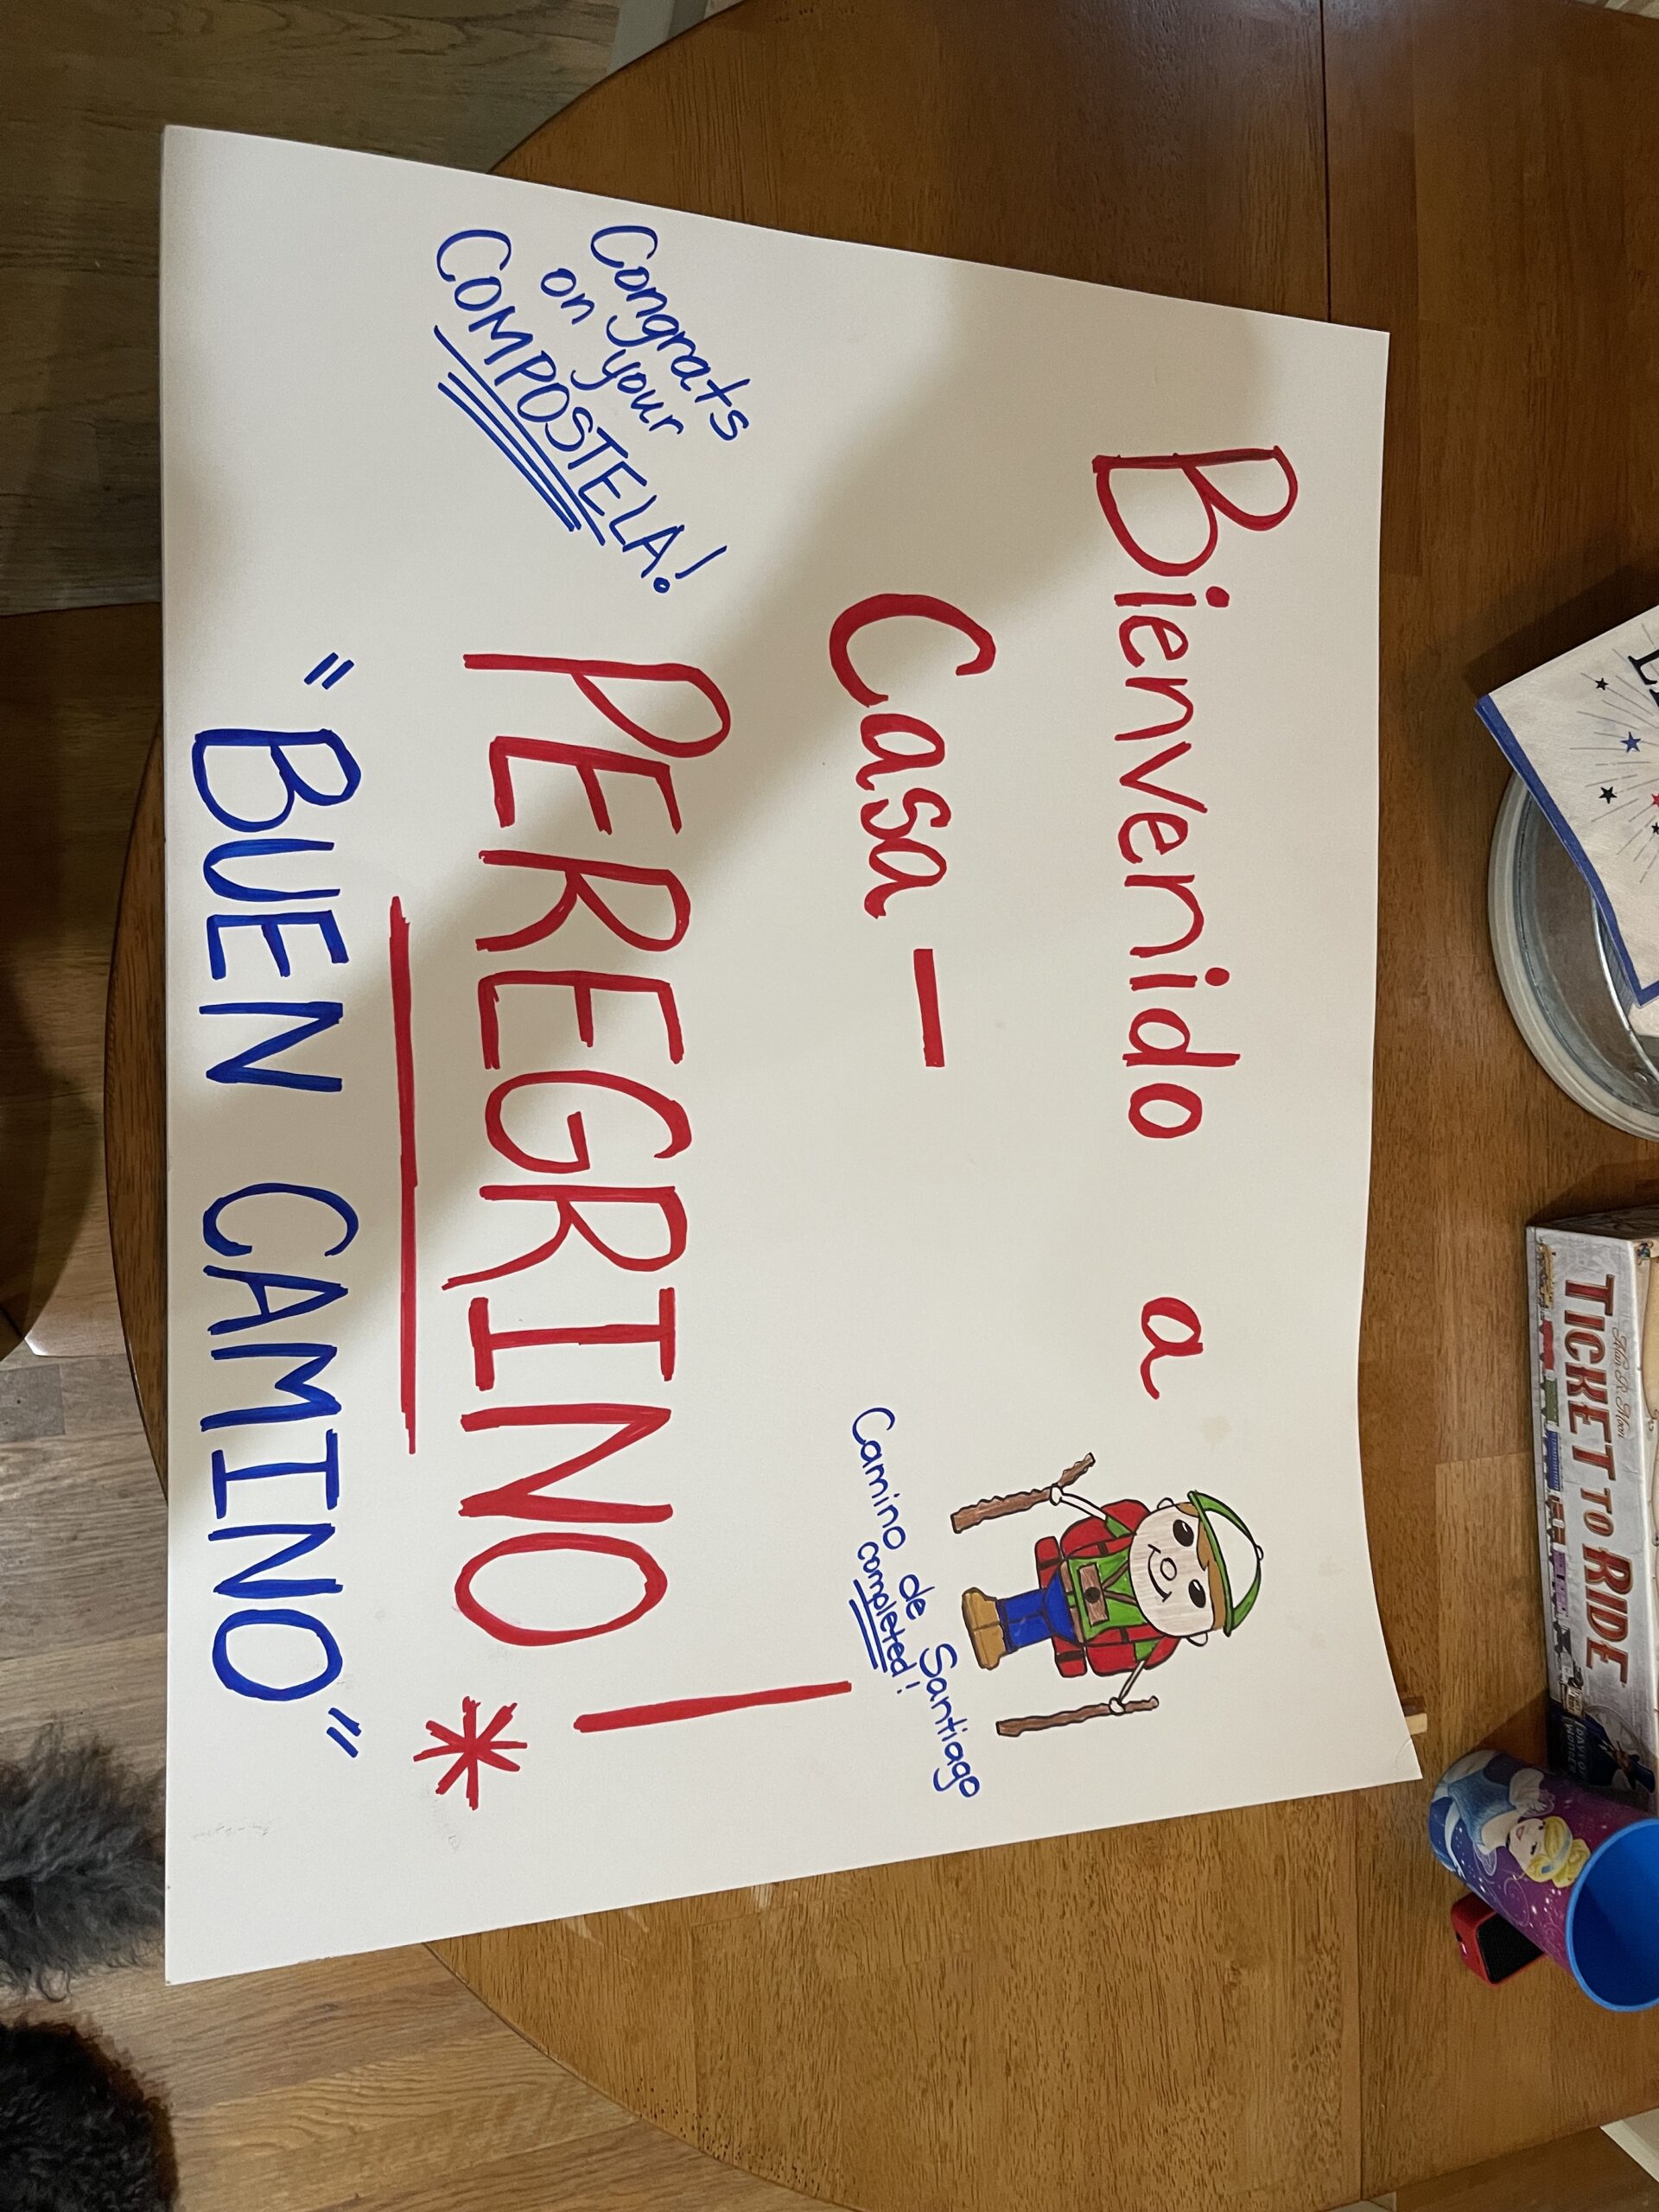 Bienvenido a
Casa —
Camino de Santiago
completed!
Congrats
on your
COMPOSTELA!
PEREGRINO!
"BUEN CAMINO"
TICKET TO RIDE